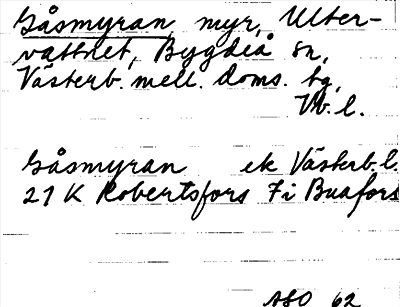 Gåsmyran myr, Ulter-
vattnet, Bygdeå sn,
Västerb. mell. doms. tg,
Vb. l.
Gåsmyran ek Västerb. l.
21 K Robertsfors 7i Buafors
ASO 62